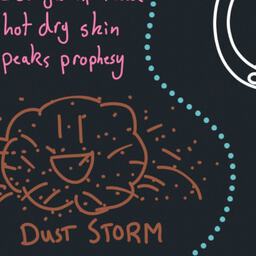 hot dry skin
peaks prophesy
DUST STORM